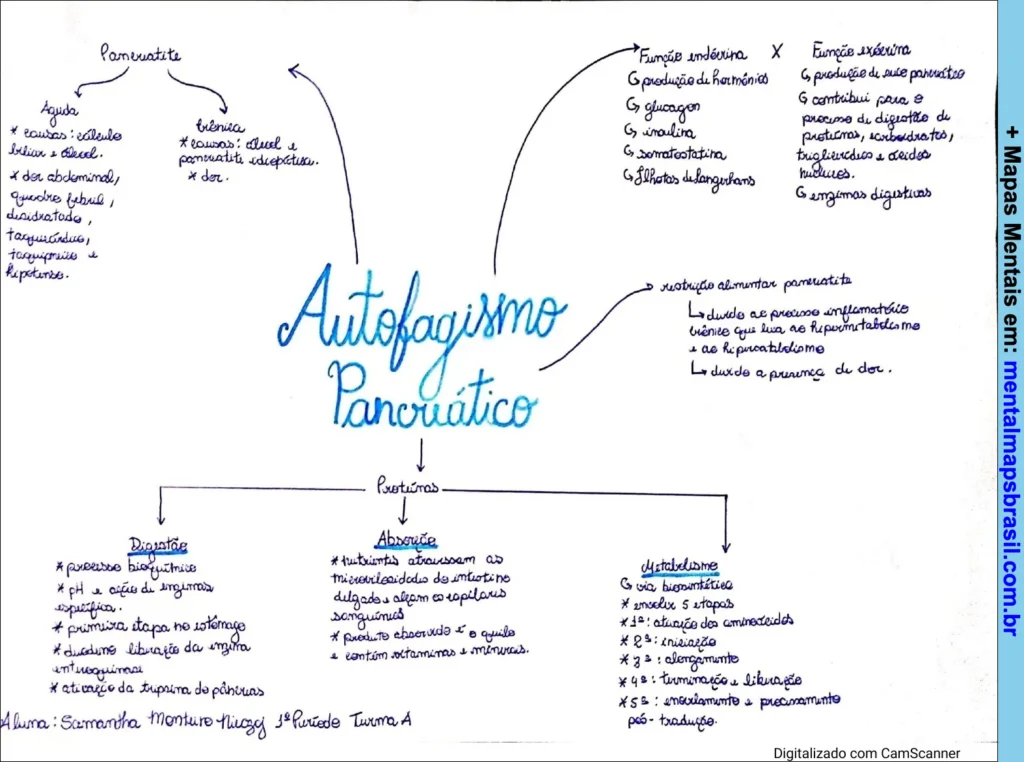 Pancreatite
Aguda
* causas: cálculo
biliar e álcool.
* dor abdominal,
quadro febril,
desidratado,
taquicárdico,
taquipneico e
hipotenso.
Crônica
* causas: álcool e
pancreatite idiopática.
* dor.
Função endócrina X Função exócrina
produção de hormônios
glucagon
insulina
somatostatina
Ilhotas de Langerhans
produção de suco pancreático
contribui para o
processo de digestão de
proteínas, carboidratos,
triglicerídios e ácidos
nucleicos.
enzimas digestivas
Autofagismo
Pancreático
restrição alimentar pancreatite
devido ao processo inflamatório
crônico que leva ao hipermetabolismo
e ao hipercatabolismo
devido a presença de dor.
Proteínas
Digestão
* processo bioquímico
* pH e ação de enzimas
específica.
* primeira etapa no estômago
* duodeno liberação da enzima
enteroquinase
* ativação da tripsina do pâncreas
Absorção
* nutrientes atravessam as
microvilosidades do intestino
delgado e alçam os capilares
sanguíneos
* produto absorvido é o quilo
e contém vitaminas e minerais.
Metabolismo
via biossintética
* envolve 5 etapas
* 1ª: ativação dos aminoácidos
* 2ª: iniciação
* 3ª: alongamento
* 4ª: terminação e liberação
* 5ª: enovelamento e processamento
pós-tradução.
Aluna: Samantha Monteiro 1º Período Turma A
Digitalizado com CamScanner
+ Mapas Mentais em: mentalmapsbrasil.com.br